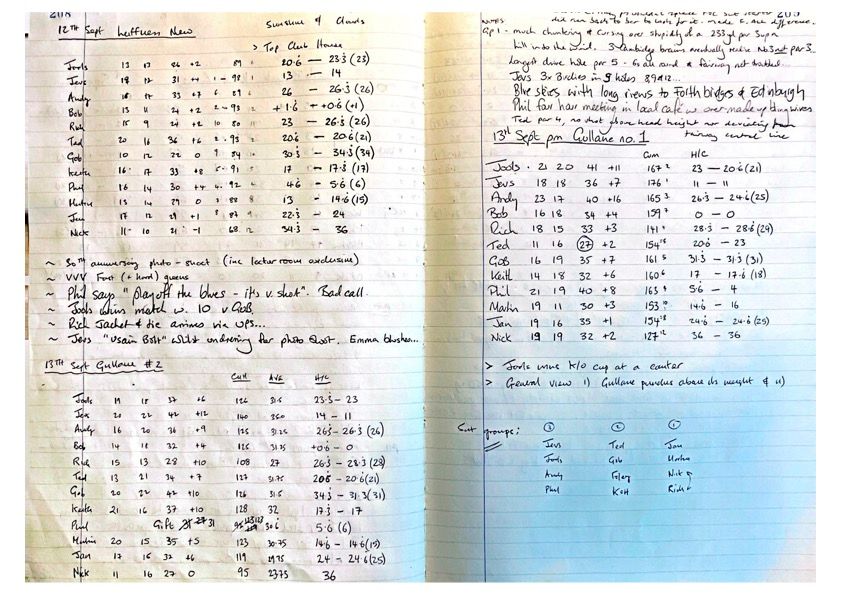 208
12TH Sept Luffness New
Sunshine & Clouds
> Top Club House
Jools 13 13 26 +2 89 20.6 — 23.3 (23)
Jevs 18 13 31 +4 98 13 — 14
Andy 33 +7 6 89 26 — 26.3 (26)
Bob 13 11 24 +2 93 +1.6 — +0.6 (+1)
Rich 15 9 24 +2 10 80 23 — 26.3 (26)
Ted 20 16 36 +6 93 20.6 — 20.6 (21)
Gob 10 12 22 0 9 84 30.3 — 34.3 (34)
Keith 16 17 33 +8 5 91 17 — 17.3 (17)
Phil 16 14 30 +4 4 92 4.6 — 5.6 (6)
Martin 13 14 29 0 88 13 — 14.6 (15)
Jan 17 12 29 +1 87 22.3 — 24
Nick 11 10 21 -1 68 12 34.3 — 36
~ 30TH anniversary photo-shoot (inc locker room exclusive)
~ VVV Fast (+ hard) greens
~ Phil says "play off the blues - it's v. short". Bad call.
~ Jools wins match w. 10 v GOB.
~ Rich Jacket & tie arrives via UPS...
~ Jevs "Usain Bolt" whilst undressing for photo shoot. Emma blushes...
13TH Sept Gullane #2
CUM AVE H/C
Jools 19 18 37 +6 126 31.5 23.3 — 23
Jevs 20 22 42 +12 140 14 — 11
Andy 16 20 36 +9 125 31.25 26.3 — 26.3 (26)
Bob 14 18 32 +4 125 31.25 +0.6 — 0
Rich 15 13 28 +10 108 27 26.3 — 28.3 (28)
Ted 13 21 34 +7 127 31.75 20.6 — 20.6 (21)
Gob 20 22 42 +10 126 31.5 34.3 — 31.3 (31)
Keith 21 16 37 +10 128 32 17.3 — 17
Phil Gift 27 31 123 30.6 5.6 (6)
Martin 20 15 35 +5 123 30.75 14.6 — 14.6 (15)
Jan 17 15 32 +6 119 29.75 24 — 24.6 (25)
Nick 11 16 27 0 95 23.75 36
NOTES
Gp 1 - much chuntering & cursing over stupidity of a 233 yd par 3 up a
hill into the wind. 3 Cambridge brains eventually realise No 3 not par 3...
Longest drive hole par 5 - G all round & fairway not troubled...
Jevs 3x Birdies in 5 holes 8 9 & 12...
Blue skies with long views to Forth bridges & Edinburgh
Phil fan hair meeting in local café w. over made up wives
Ted par 4, no shot above head height nor deviating from
fairway central line
13th Sept pm Gullane no. 1
Cum H/C
Jools 21 20 41 +11 167 23 — 20.6 (21)
Jevs 18 18 36 +7 176 11 — 11
Andy 23 17 40 +16 165 26.3 — 24.6 (25)
Bob 16 18 34 +4 159 0 — 0
Rich 18 15 33 +3 141 28.3 — 28.3 (29)
Ted 11 16 27 +2 154 20.6 — 23
GOB 16 19 35 +7 161 31.3 — 31.3 (31)
Keith 14 18 32 +6 160 17 — 17.6 (18)
Phil 21 19 40 +8 163 5.6 — 4
Martin 19 11 30 +3 153 14.6 — 16
Jan 19 16 35 +1 154 24.6 — 24.6 (25)
Nick 19 19 32 +2 127 36 — 36
> Jools wins K/O cup at a canter
> General view 1) Gullane punches above its weight & 11)
groups: ③ ② ①
Jevs Ted Jan
Jools Gob Martin
Andy Foley Nick
Phil Keith Rich